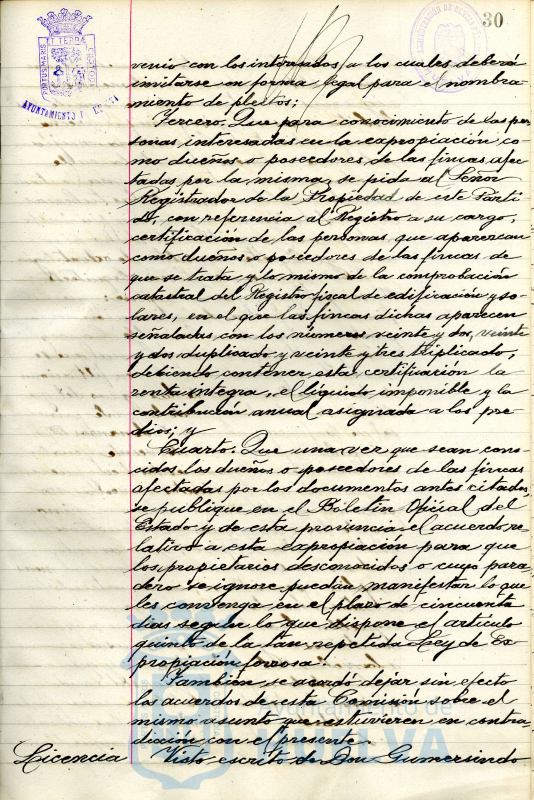 30
AYUNTAMIENTO
venio con los interesados a los cuales deberá
invitarse en forma legal para el nombra-
miento de pleitos;
Tercero. Que para conocimiento de las per
sonas interesadas en la expropiación co-
mo dueños o poseedores de las fincas afec-
tadas por la misma, se pida al Señor
Registrador de la Propiedad de este Parti-
do, con referencia al Registro a su cargo,
certificación de las personas que aparezcan
como dueños o poseedores de las fincas de
que se trata y lo mismo de la comprobación
catastral del Registro fiscal de edificación y so-
lares, en el que las fincas dichas aparecen
señaladas con los números veinte y dos, veinte
y dos duplicado y veinte y tres triplicado,
debiendo contener esta certificación la
renta íntegra, el líquido imponible y la
contribución anual asignada a los pre-
dios; y
Cuarto. Que una vez que sean cono-
cidos los dueños o poseedores de las fincas
afectadas por los documentos antes citados,
se publique en el Boletín Oficial del
Estado y de esta provincia el acuerdo re-
lativo a esta expropiación para que
los propietarios desconocidos o cuyo para
dero se ignore puedan manifestar lo que
les convenga en el plazo de cincuenta
días según lo que dispone el artículo
quinto de la tan repetida Ley de Ex-
propiación forzosa.
También se acordó dejar sin efecto
los acuerdos de esta Comisión sobre el
mismo asunto que estuvieren en contra-
dicción con el presente.
Licencia Visto escrito de Don Gumersindo
Ayuntamiento de
HUELVA